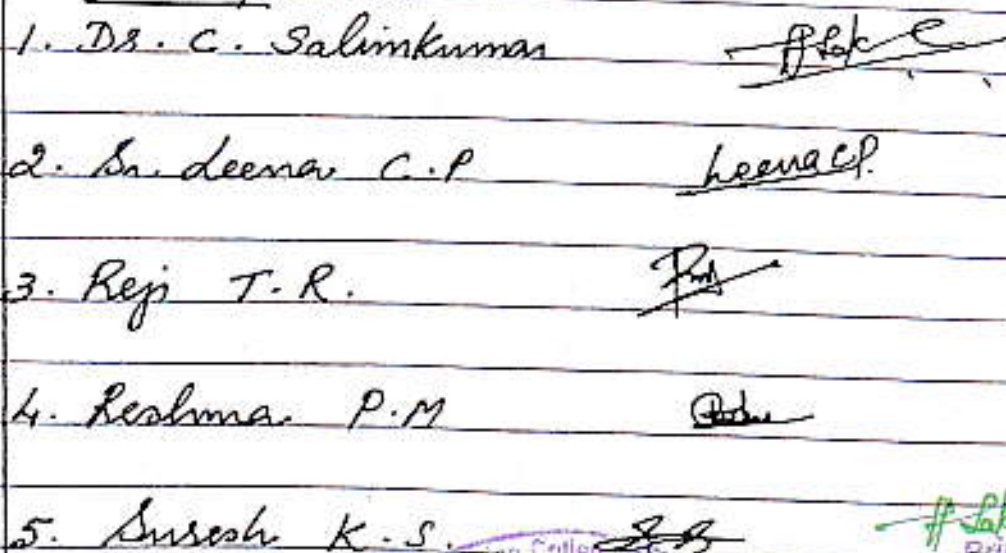 1. Dr. C. Salimkumar
2. Sr. Leena C.P Leena C.P.
3. Reji T.R.
4. Reshma P.M
5. Suresh K.S.